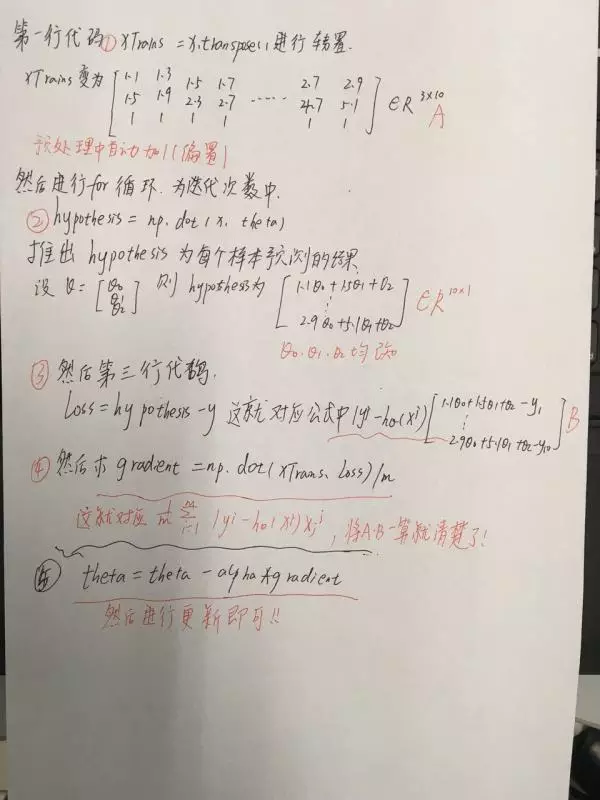 第一行代码① xTrains = x.transpose(), 进行转置.
xTrains 变为 [1.1 1.3 1.5 1.7 2.7 2.9
1.5 1.9 2.3 2.7 ····· 4.7 5.1
1 1 1 1 1 1] ∈R 3×10
A
预处理中自动加1(偏置)
然后进行for循环. 为迭代次数中.
② hypothesis = np.dot(x, theta)
推出 hypothesis 为每个样本预测的结果
设 θ = [θ0 θ1 θ2] 则 hypothesis为 [1.1θ0+1.5θ1+θ2
⋮
2.9θ0+5.1θ1+θ2] ∈R 10×1
θ0.θ1.θ2 均已知
③ 然后第三行代码.
Loss = hypothesis - y 这就对应公式中 (yi - hθ(xi)) [1.1θ0+1.5θ1+θ2-y1
⋮
2.9θ0+5.1θ1+θ2-y10] B
④ 然后求 gradient = np.dot(xTrans, Loss)/m
这就对应 1/m Σ i=1 m (yi - hθ(xi)) xji , 将A·B一算就清楚了!
⑤ theta = theta - alpha * gradient
然后进行更新即可!!